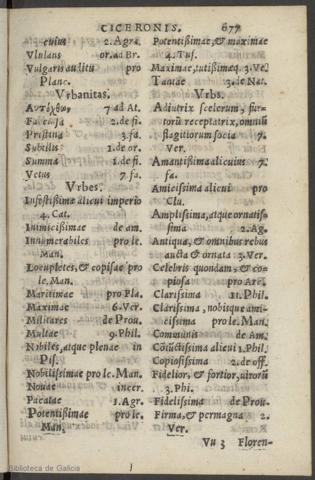 CICERONIS. 677
cuius 2. Agra.
Vlulans or. ad Br.
Vulgaris auditu pro
Planc.
Vrbanitas.
7 ad At.
2. de fi.
Pristina 3. fa.
Subtilis 1. de or.
Summa 1. de fi.
Vetus 7. fa.
Vrbes.
Infestißimæ alicui imperio
4. Cat.
Inimicißimæ de am.
Innumerabiles pro le.
Man.
Locupletes, & copiosæ pro
le. Man.
Maritimæ pro Pla.
Maximæ 6. Ver.
Militares de Prou.
Multæ 9. Phil.
Nobiles, atque plenæ in
Pis.
Nobilissimæ pro le. Man.
Nouæ incer.
Pacatæ 1. Agr.
Potentißimæ pro le.
Man.
Potentißimæ, & maximæ
4. Tus.
Maximæ, tutißimæq. 3. Ve.
Tantæ 3. de Nat.
Vrbs.
Adiutrix scelerum, fur-
torū receptatrix, omniū
flagitiorum socia 7.
Ver.
Amantißima alicuius 7.
fa.
Amicißima alicui pro
Clu.
Amplißima, atque ornatis-
sima 2. Ag.
Antiqua, & omnibus rebus
aucta & ornata 3. Ver.
Celebris quondam, & co-
piosa pro Arc.
Clarißima 11. Phil.
Clarissima, nobisque ami-
cißima pro le. Man.
Communis de Am.
alicui 1. Phil.
Copiosißima 2. de off.
Fidelior, & fortior, uirorū
3. Phi.
Fidelißima de Prou.
Firma, & permagna 2.
Ver.
Vu 3 Floren-
Biblioteca de Galicia